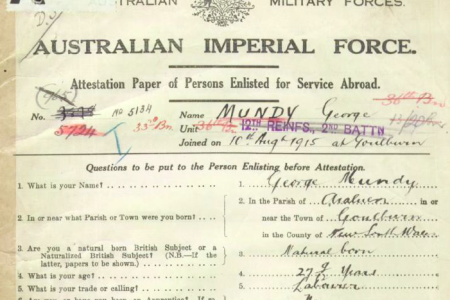 AUSTRALIAN MILITARY FORCES.
AUSTRALIAN IMPERIAL FORCE.
Attestation Paper of Persons Enlisted for Service Abroad.
No. No 5134 Name MUNDY George
5724 33rd Bn Unit 36th Bn 12TH REINFS., 2ND BATTN 36th Bn
Joined on 10th Augt 1915 at Goulburn
Questions to be put to the Person Enlisting before Attestation.
1. What is your Name? .... 1. George Mundy
2. In or near what Parish or Town were you born? .... 2. In the Parish of in or
near the Town of Goulburn
in the County of New South Wales
3. Are you a natural born British Subject or a 3. Natural born
Naturalized British Subject? (N.B.—If the
latter, papers to be shown.) ....
4. What is your age? .... 4. 27 Years
5. What is your trade or calling? .... 5. Labourer